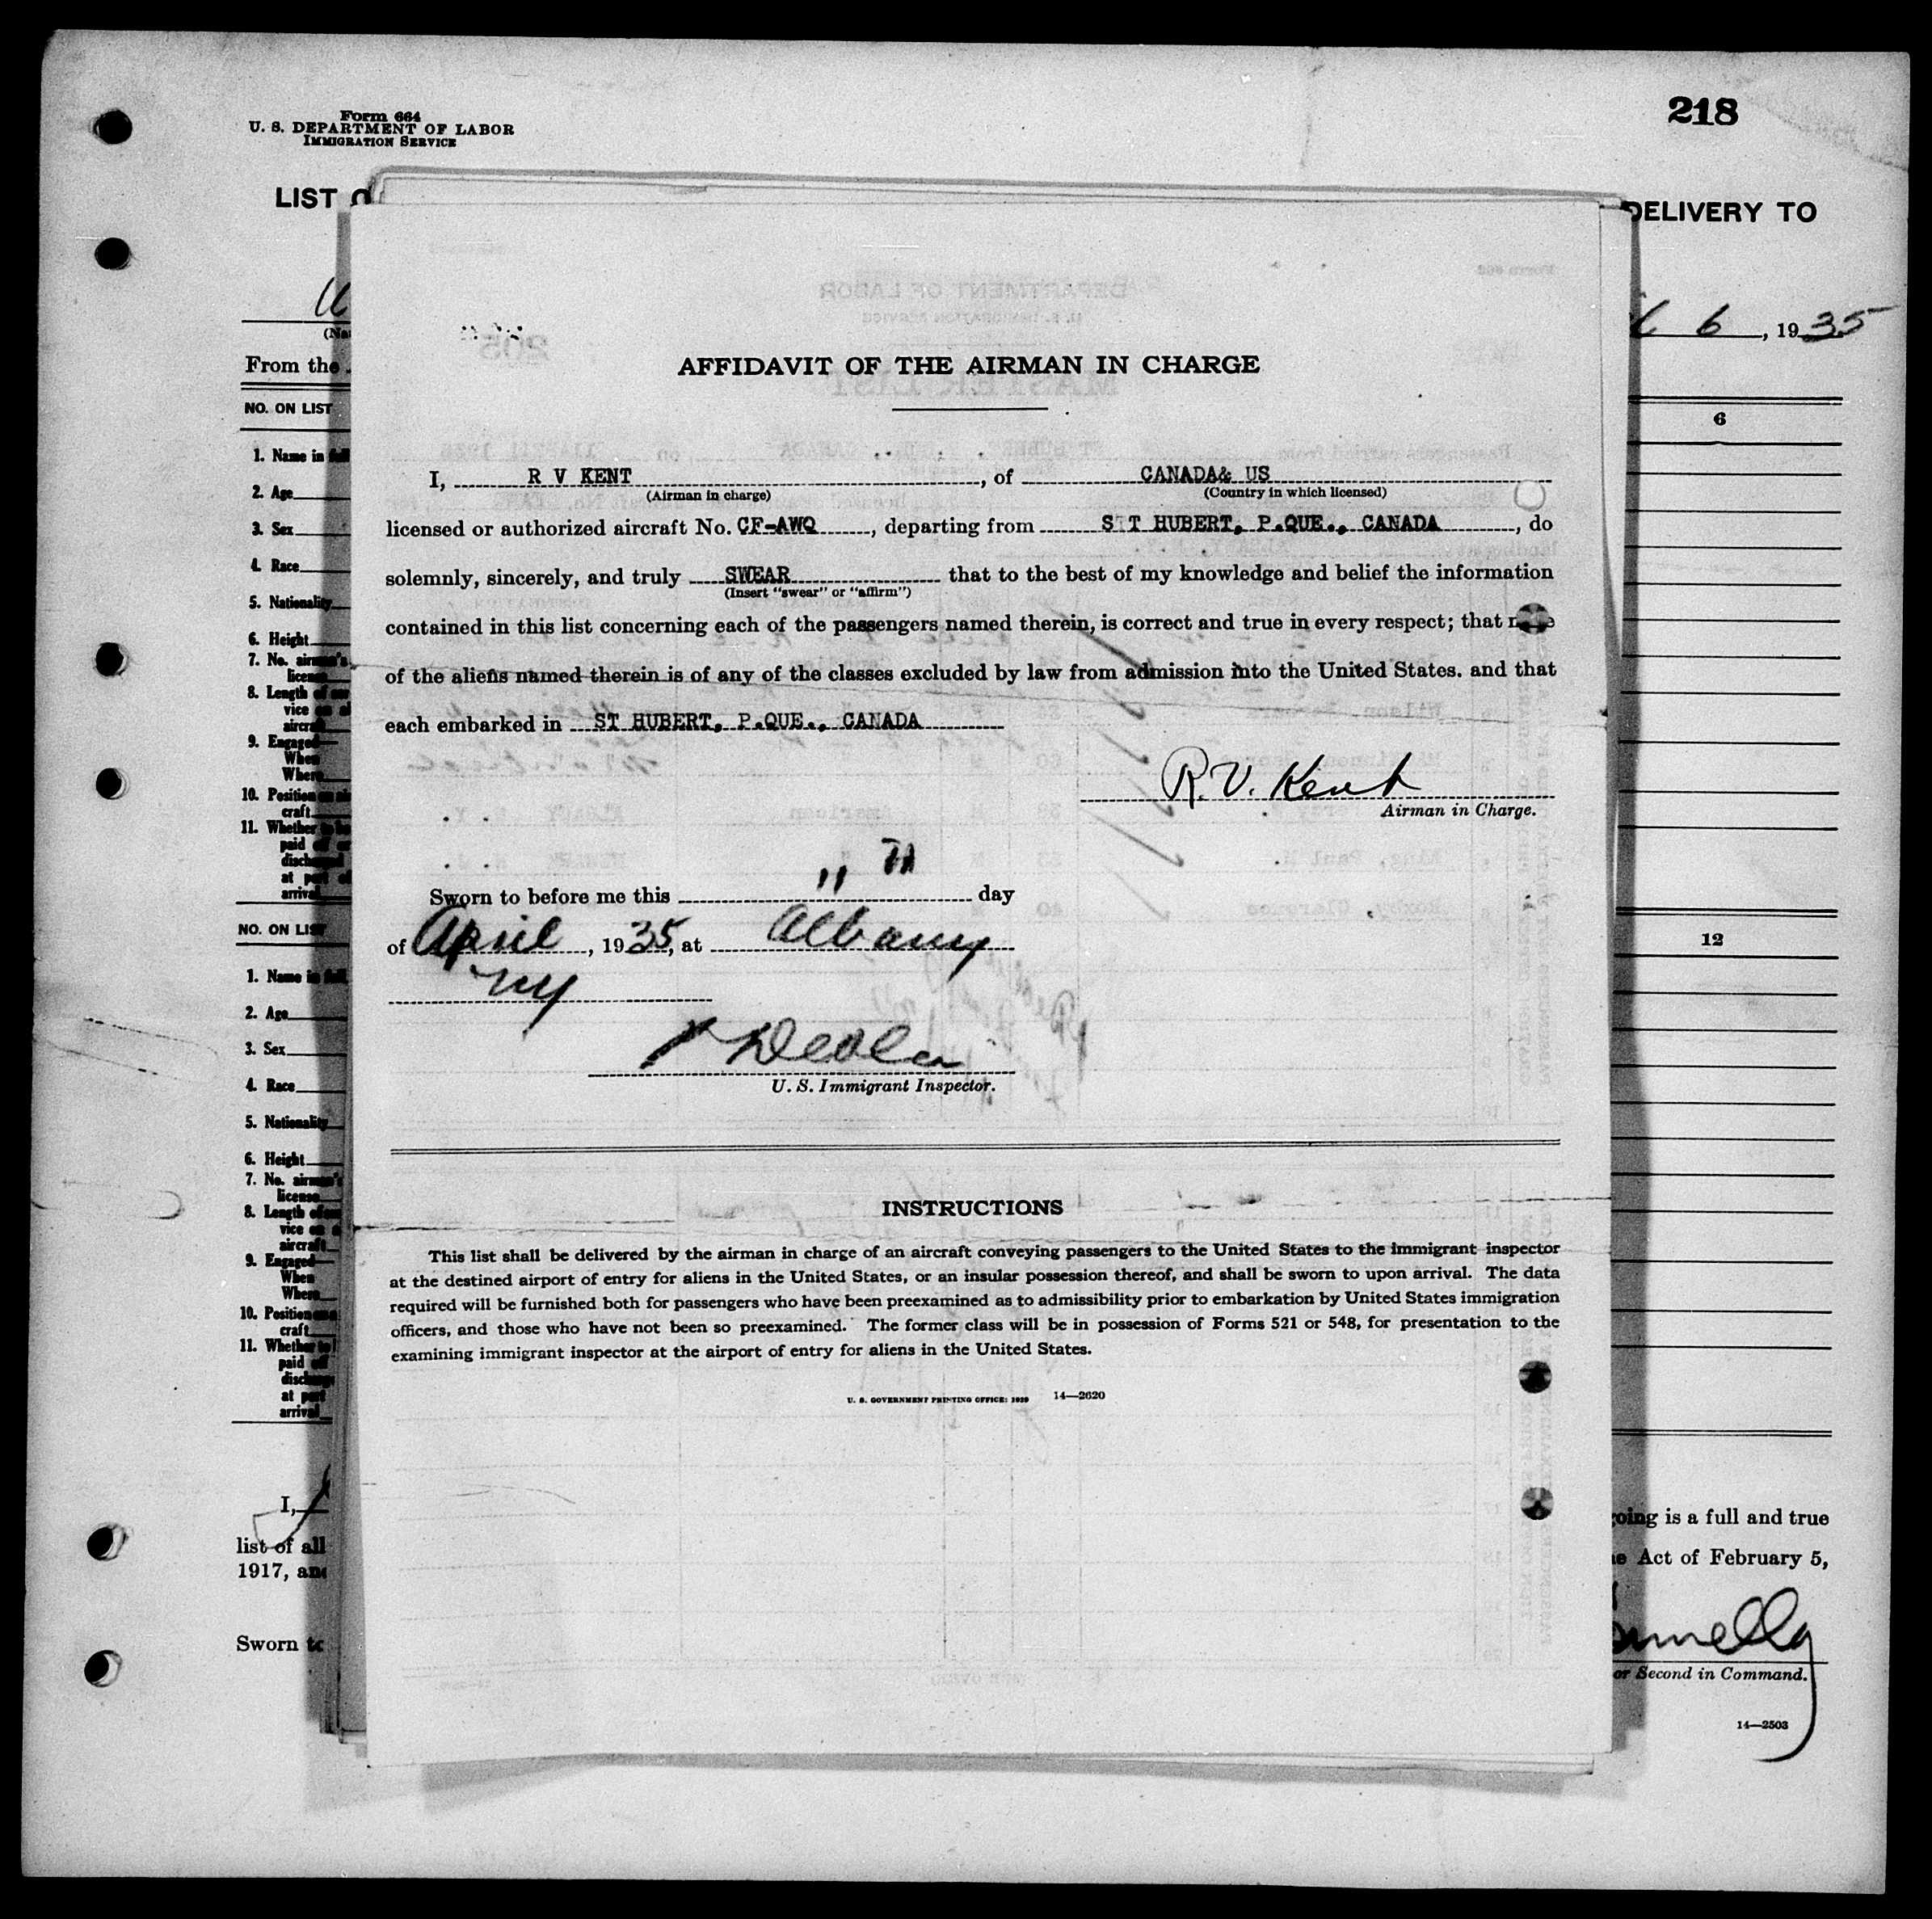 Form 664
U. S. DEPARTMENT OF LABOR
IMMIGRATION SERVICE
218
LIST O
DELIVERY TO
6, 1935
(Na
From the
NO. ON LIST
6
1. Name in full
2. Age
3. Sex
4. Race
5. Nationality
6. Height
7. No. airman's
license
8. Length of ser
vice on al
aircraft
9. Engaged—
When
Where
10. Position on air
craft
11. Whether to be
paid off or
discharged
at port of
arrival
NO. ON LIST
12
1. Name in full
2. Age
3. Sex
4. Race
5. Nationality
6. Height
7. No. airman's
license
8. Length of ser
vice on a
aircraft
9. Engaged—
When
Where
10. Position on a
craft
11. Whether to
paid off
discharg
at port
arrival
I,
list of all
1917, and
Sworn to
going is a full and true
e Act of February 5,
nnelly
or Second in Command.
14—2503
AFFIDAVIT OF THE AIRMAN IN CHARGE
I, R V KENT, of CANADA& US
(Airman in charge) (Country in which licensed)
licensed or authorized aircraft No. CF-AWQ, departing from S T HUBERT, P.QUE., CANADA, do
solemnly, sincerely, and truly SWEAR that to the best of my knowledge and belief the information
(Insert "swear" or "affirm")
contained in this list concerning each of the passengers named therein, is correct and true in every respect; that none
of the aliens named therein is of any of the classes excluded by law from admission into the United States. and that
each embarked in ST HUBERT, P.QUE., CANADA
R. V. Kent
Airman in Charge.
Sworn to before me this 11 TH day
of April, 1935, at Albany
NY
U. S. Immigrant Inspector.
INSTRUCTIONS
This list shall be delivered by the airman in charge of an aircraft conveying passengers to the United States to the immigrant inspector
at the destined airport of entry for aliens in the United States, or an insular possession thereof, and shall be sworn to upon arrival. The data
required will be furnished both for passengers who have been preexamined as to admissibility prior to embarkation by United States immigration
officers, and those who have not been so preexamined. The former class will be in possession of Forms 521 or 548, for presentation to the
examining immigrant inspector at the airport of entry for aliens in the United States.
U. S. GOVERNMENT PRINTING OFFICE: 1929 14—2620